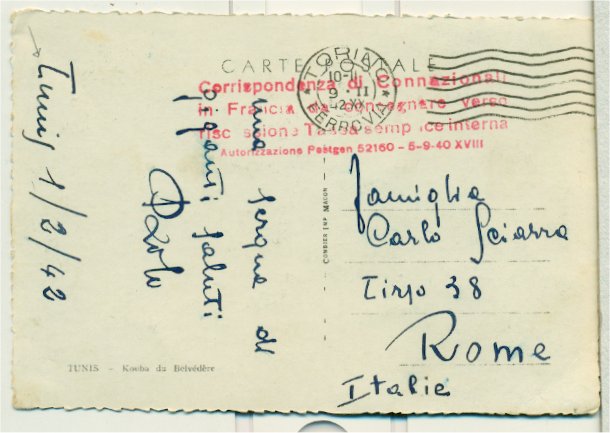 CARTE POSTALE
TORINO
10-11
9 · II
42 XX
FERROVIA
Corrispondenza di Connazionali
in Francia da consegnare verso
riscossione Tassa semplice interna
Autorizzazione Postgen 52160 - 5-9-40 XVIII
Tunis 1/2/42
una serqua di
saluti
Paolo
CONDIER IMP MACON
Famiglia
Carlo Sciarra
Tirso 38
Rome
Italie
TUNIS - Kouba du Belvédère